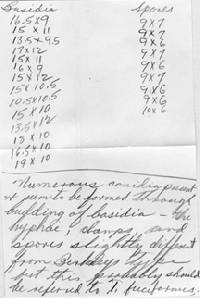 Basidia Spores
16.5 x 9 9 x 7
15 x 11 9 x 7
13.5 x 9.5 9 x 6
17 x 12 9 x 6
15 x 11 9 x 7
16 x 9 9 x 6
15 x 12 9 x 7
15 x 10.5 9 x 6
10.5 x 10.5 9 x 6
15 x 10 10 x 6
13.5 x 12
13 x 10
16.5 x 10
19 x 10
Numerous
to be formed through
building of basidia – the
hyphae, clamps, and
spores slightly different
from Berkeleys type
but this probably should
be referred to T. fuciformis.